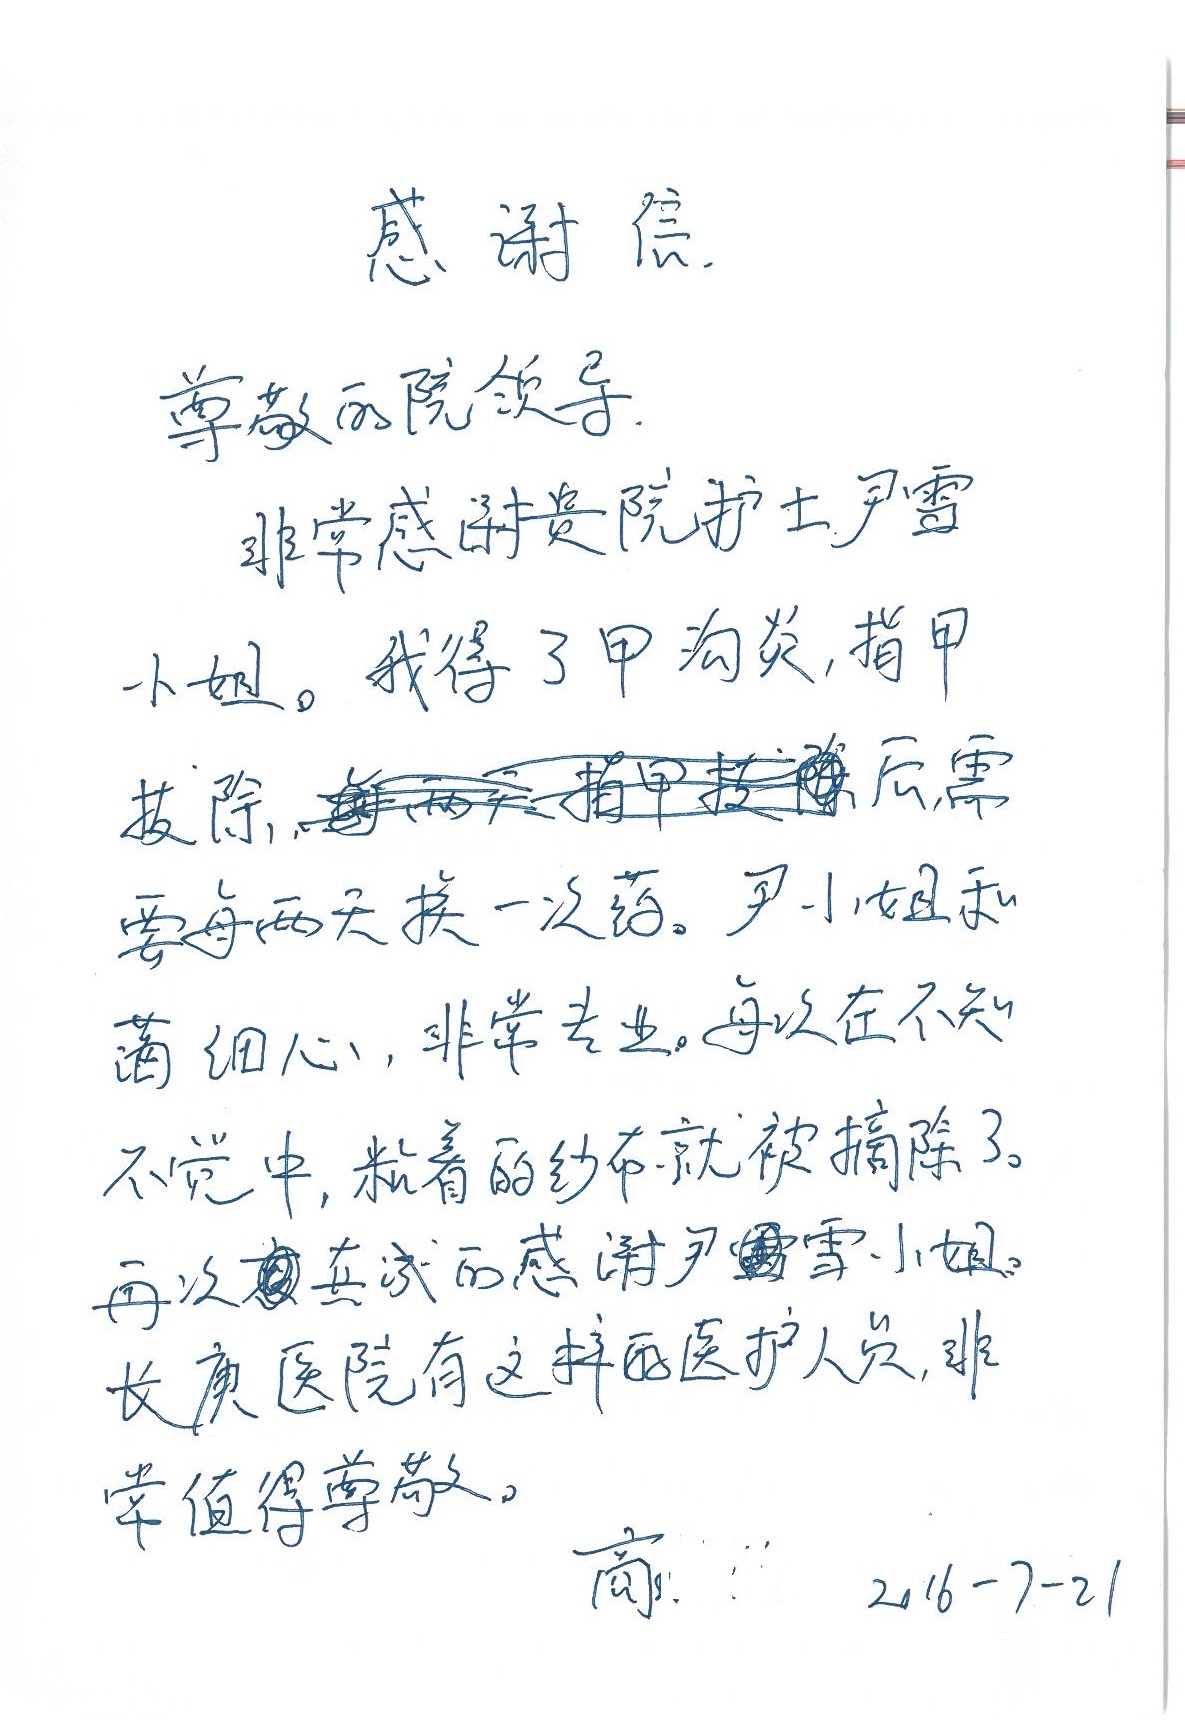 感谢信.
尊敬的院领导.
非常感谢贵院护士尹雪
小姐。我得了甲沟炎,指甲
拔除,后,需
要每两天换一次药。尹小姐和
蔼细心,非常专业。每次在不知
不觉中,粘着的纱布就被摘除了。
再次真诚的感谢尹雪小姐。
长庚医院有这样的医护人员,非
常值得尊敬。
商 2016-7-21